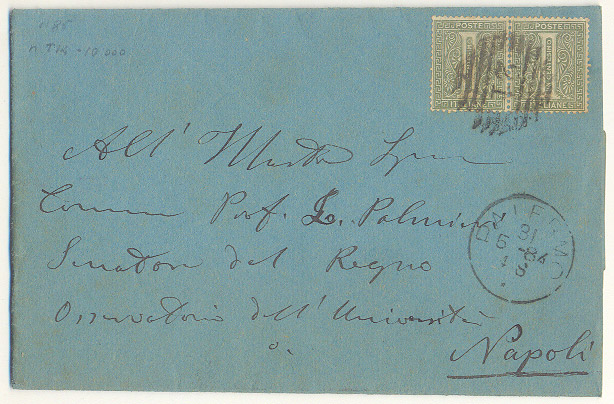 POSTE POSTE
ITALIANE ITALIANE
All' Illustre Signor
Comm. Prof. L. Palmieri
Senatore del Regno
Osservatorio dell' Università
a
Napoli
PALERMO
31